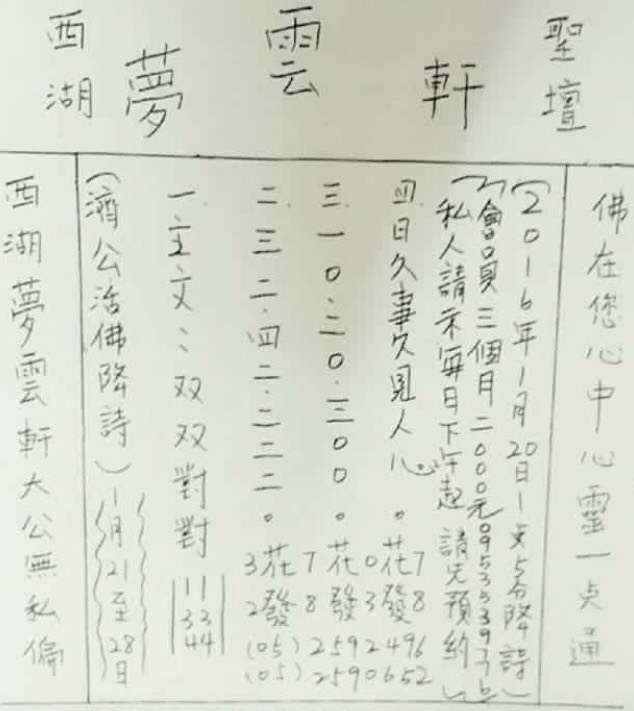 西湖 夢雲軒 聖壇
西湖夢雲軒大公無私偏
(濟公活佛降詩)1月21至28日
一.主文:双双對對
11
33
44
二.三二.四二.二二二。
三.一0.二0.三00。
四日久事久見人心。
3花7花0花7
2發8發3發8
(05)2592496
(05)2590652
(私人請示每日下午起 請先預約)
(會員三個月二000元
(2016年1月20日1点5分降詩)
佛在您心中心靈一点通